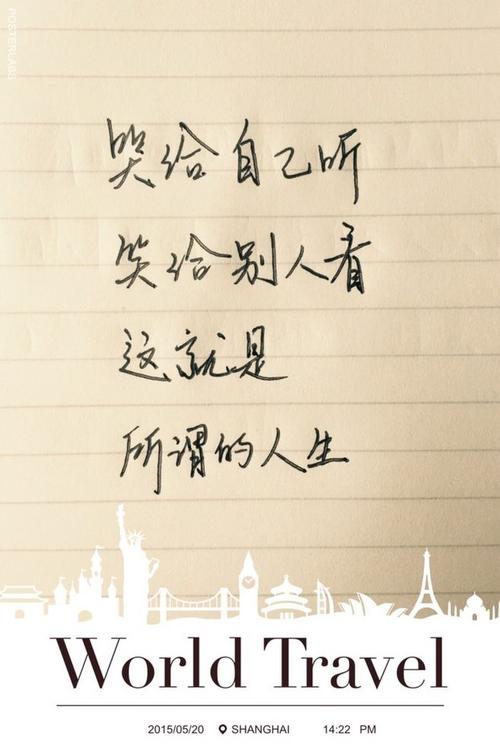 POSTERLABS
哭给自己听
笑给别人看
这就是
所谓的人生
World Travel
2015/05/20 SHANGHAI 14:22 PM